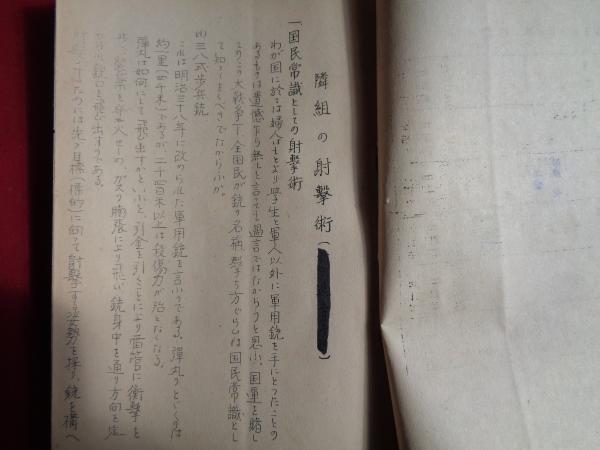 隣組の射撃術(
一国民常識としての射撃術
わが国に於ては婦人はもとより学生と軍人以外に軍用銃を手にとつたことの
あるものは遺憾乍ら無しと言つても過言ではなからうと思ふ。国運を賭し
てのこの大戦争下、全国民が銃の名称、撃ち方ぐらゐは国民常識とし
て知つておくべきでなからふか。
(1)三八式歩兵銃
これは明治三十八年に改められた軍用銃を言ふのである。弾丸のとゞくのは
約一里(四千米)であるが、二千四百米以上は殺傷力が殆となくなる。
弾丸は如何にして飛出すかといふと、引金を引くことにより雷管に衝撃を
を発火せしめ、ガスの膨張により弾が銃身中を通り方向を定
銃口を飛び出すのである。
射撃 には先づ目標(標的)に向つて射撃する姿勢を採り、銃を構へ